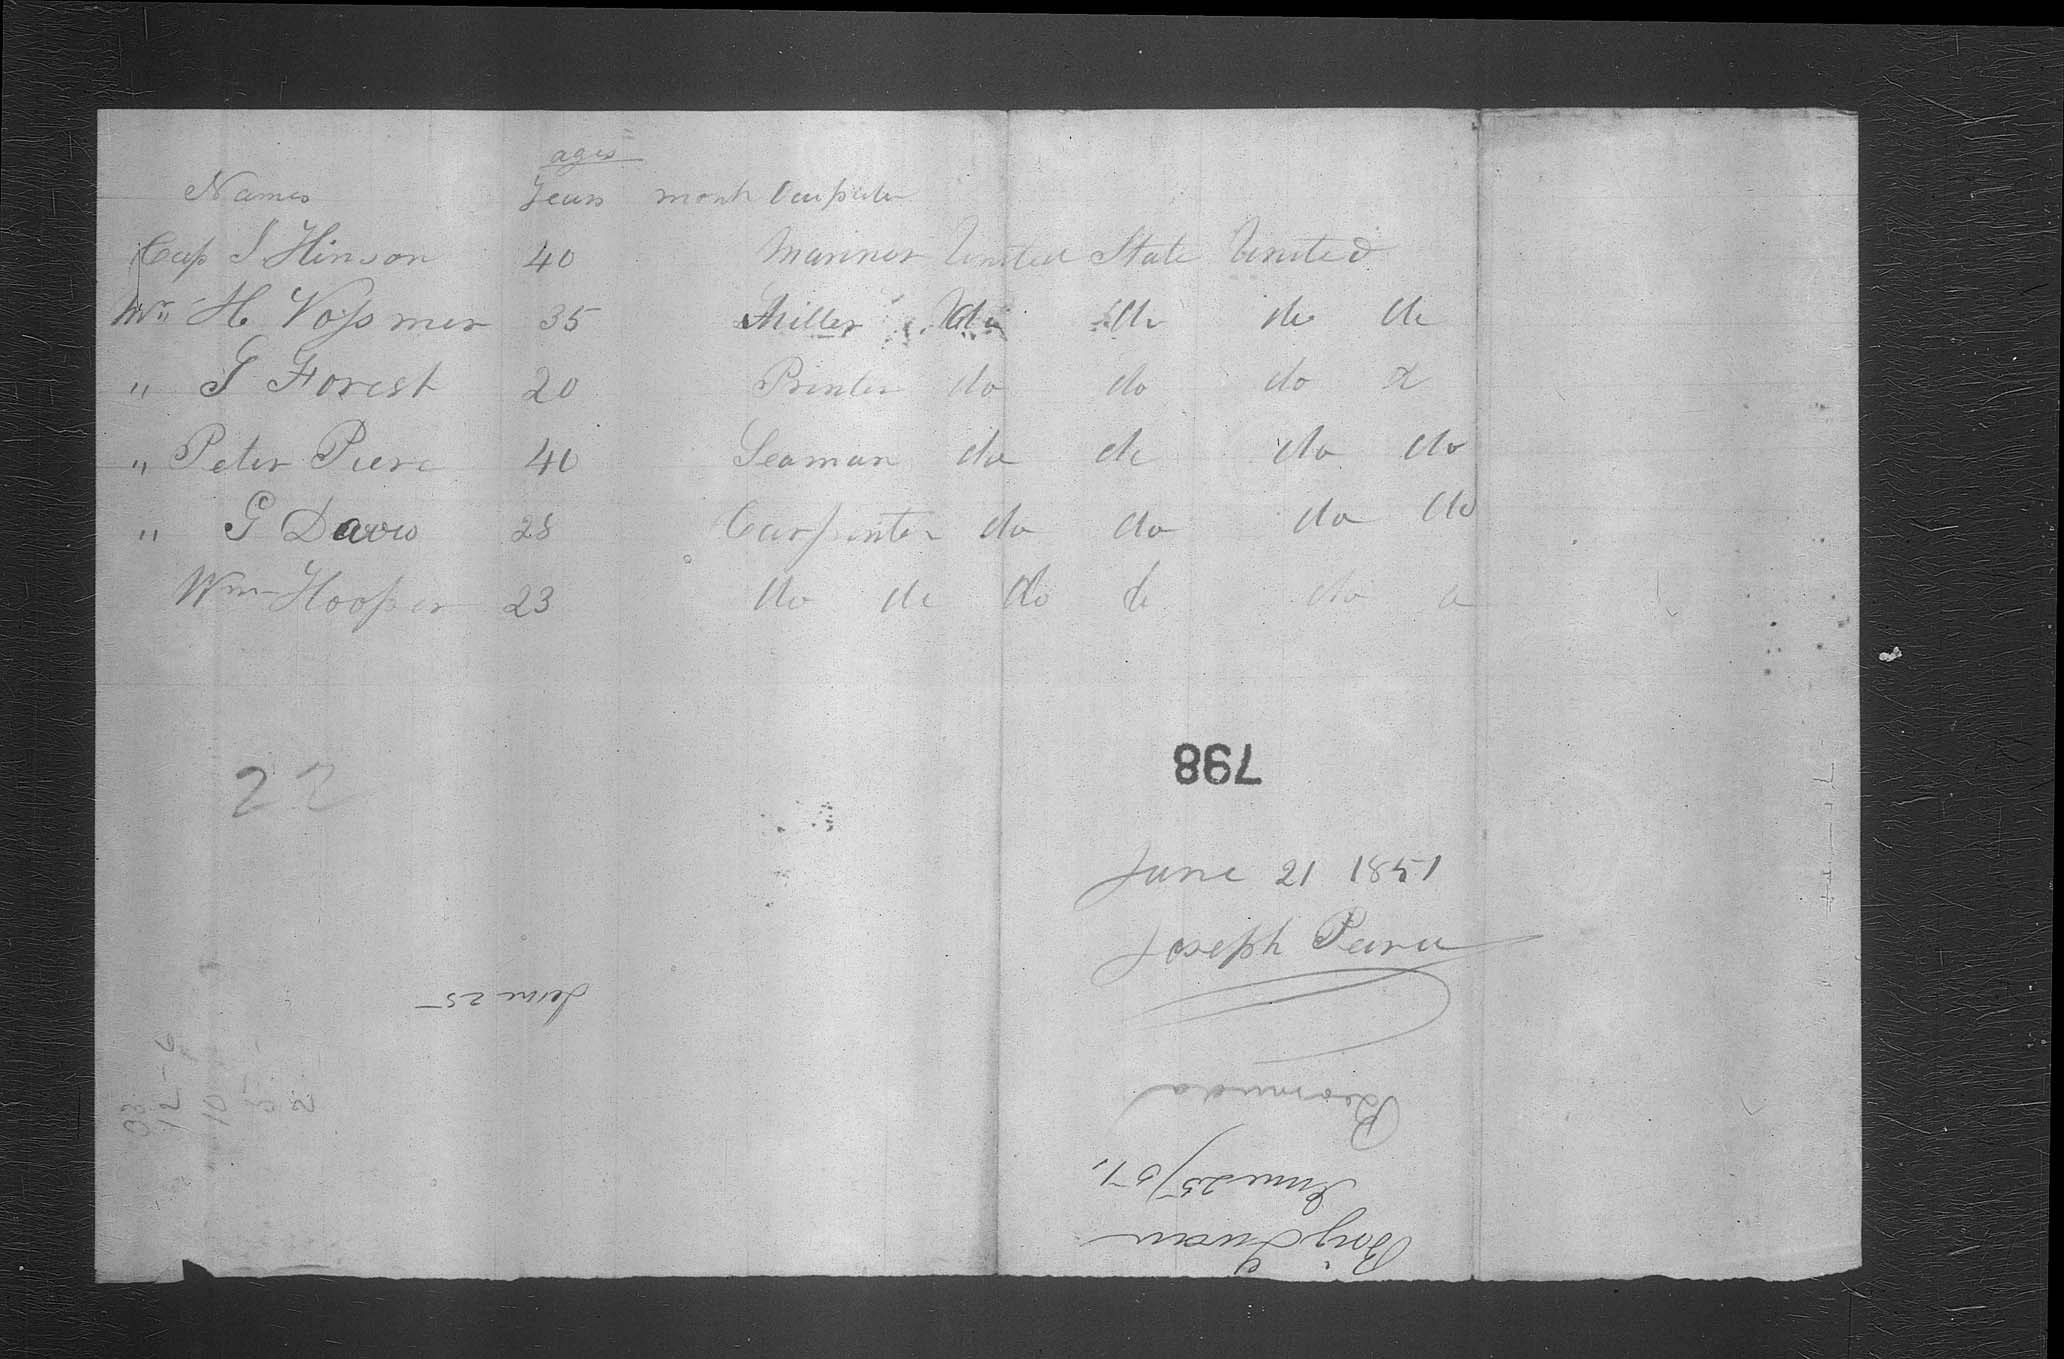 ages
Names Years month Ocupation
Cap J Hinson 40 Marinor United State United
Mr. H Vossmer 35 Miller do do do do
" G Forest 20 Printer do do do d
" Peter Pierc 40 Seaman do do do do
" G Davis 28 Carpinter do do do do
Wm Hooper 23 do do do do do d
22
798
June 21 1851
Joseph Pearce
June 25
Bermuda
June 25/51
Brig Swan